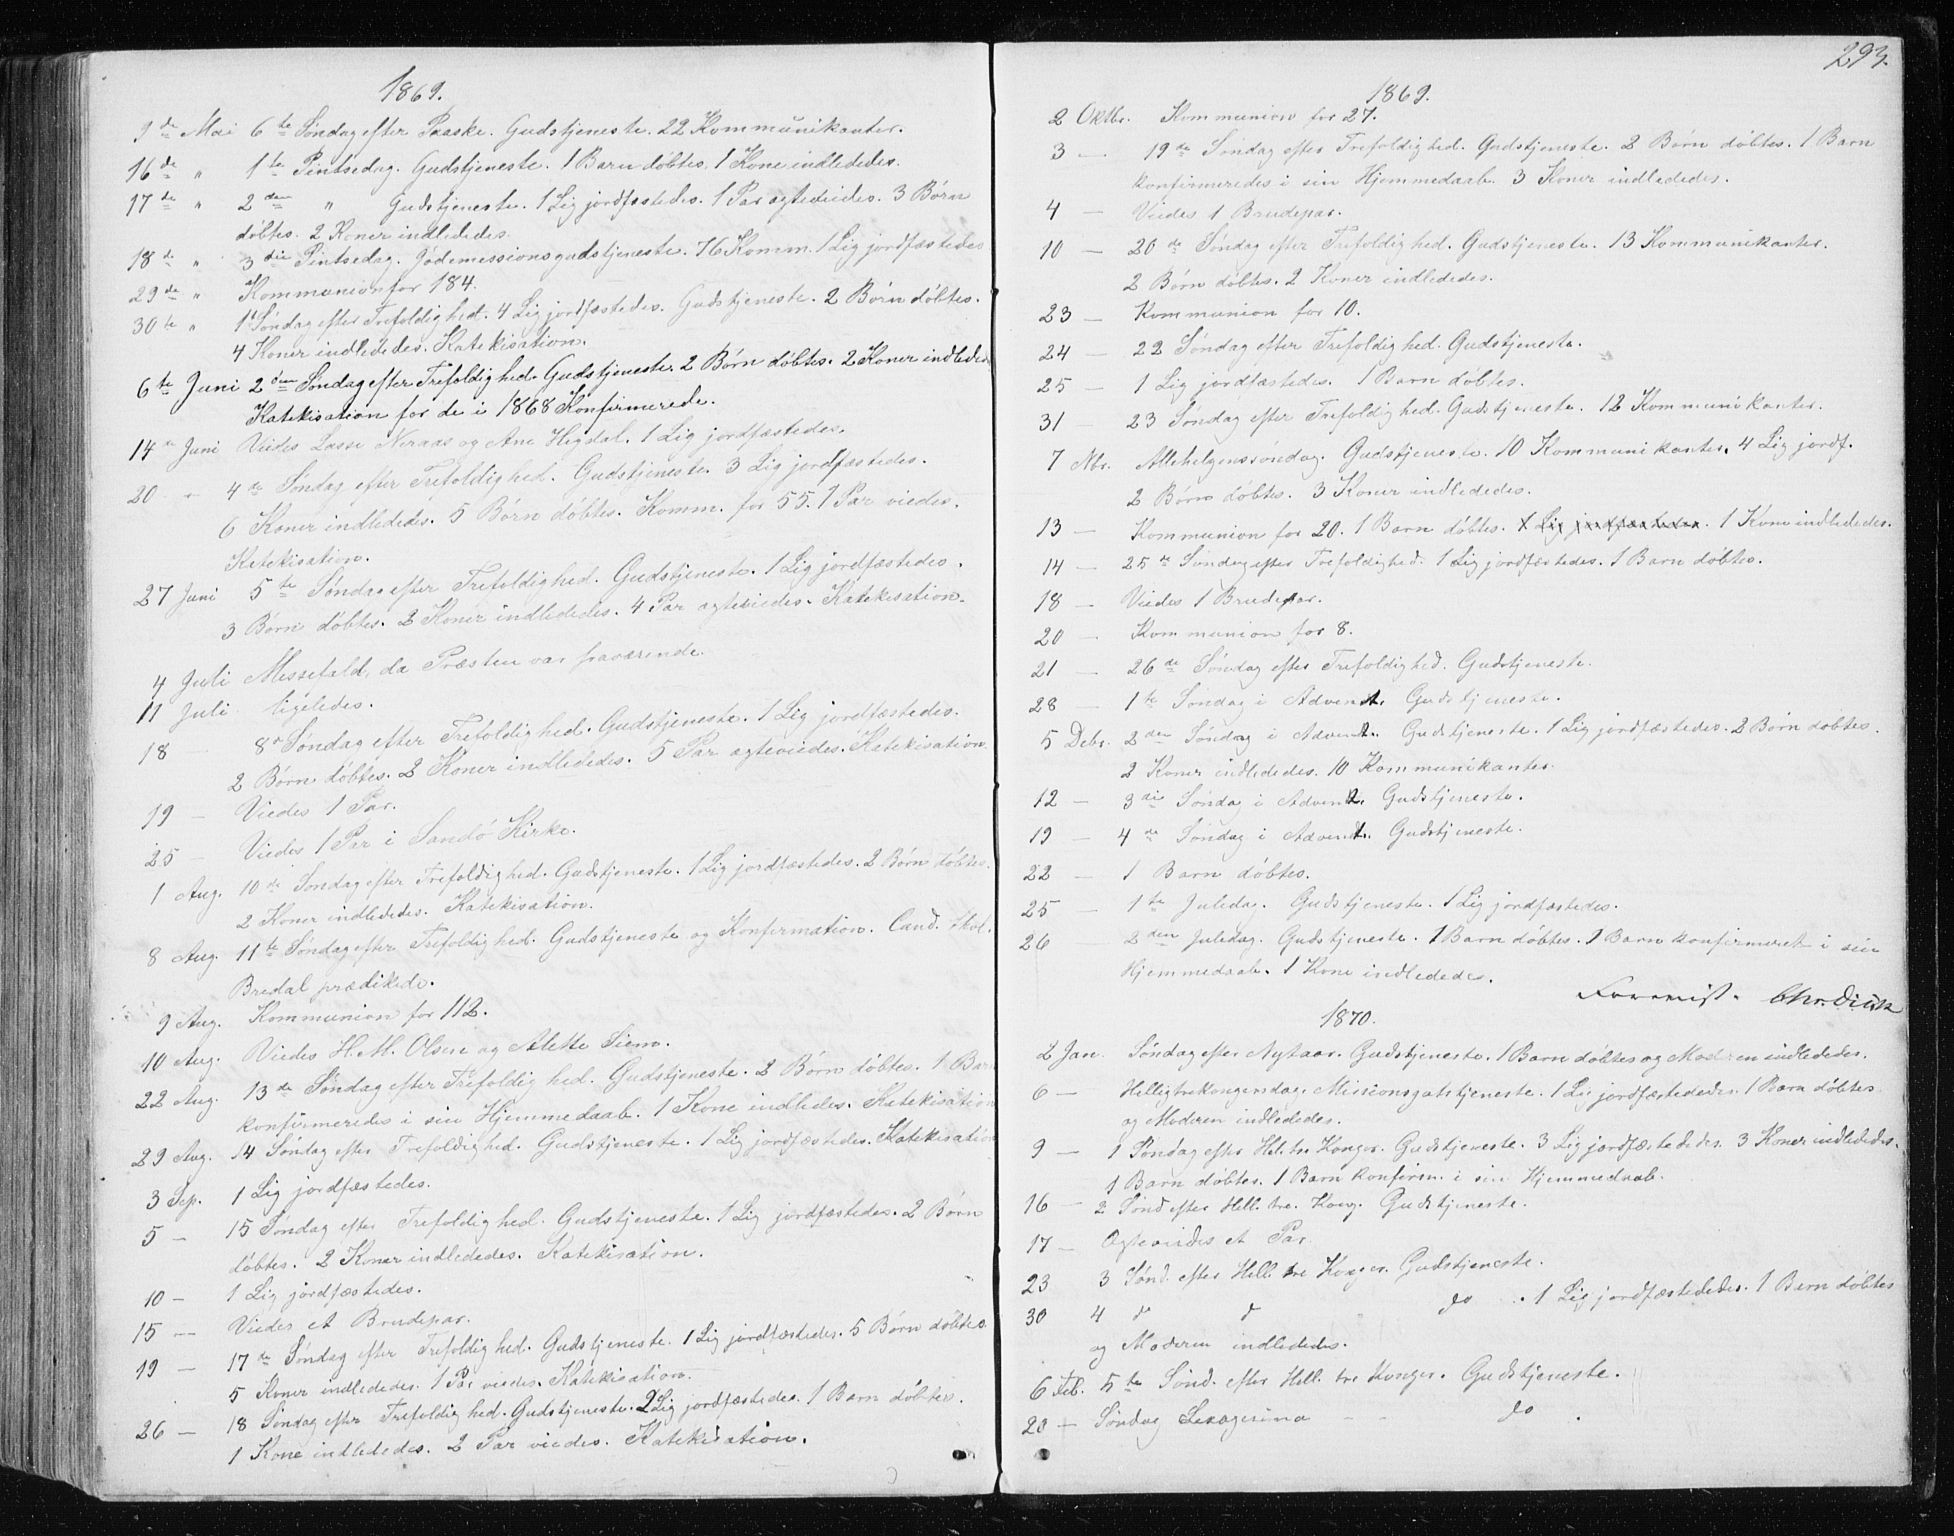 1869.
9de Mai 6te Søndag efter Paaske. Gudstjeneste. 22 Kommunikanter.
16de " 1te Pintsedag. Gudstjeneste. 1 Barn døbtes. 1 Kone indlededes.
17de " 2den " Gudstjeneste. 1 Lig jordfæstedes. 1 Par ægteviedes. 3 Børn
døbtes. 2 Koner indlededes.
18de " 3die Pintsedag. Jødemissionsgudstjeneste. 76 Komm. 1 Lig jordfæstedes
29de " Kommunion for 184.
30te " 1 Søndag efter Trefoldighed. 4 Lig jordfæstedes. Gudstjeneste. 2 Børn døbtes.
4 Koner indlededes. Katekisation.
6te Juni 2den Søndag efter Trefoldighed. Gudstjeneste. 2 Børn døbtes. 2 Koner indleded
Katekisation for de i 1868 Konfirmerede.
14 Juni Viedes Lasse Neraas og Ane Higdal. 1 Lig jordfæstedes.
20 " 4de Søndag efter Trefoldighed. Gudstjeneste. 3 Lig jordfæstedes.
6 Koner indlededes. 5 Børn døbtes. Komm. for 55. 1 Par viedes.
Katekisation.
27 Juni 5te Søndag efter Trefoldighed. Gudstjeneste. 1 Lig jordfæstedes.
3 Børn døbtes. 2 Koner indlededes. 4 Par ægteviedes. Katekisation.
4 Juli Messefald, da Præsten var fraværende.
11 Juli ligeledes.
18 — 8de Søndag efter Trefoldighed. Gudstjeneste. 1 Lig jordfæstedes.
2 Børn døbtes. 2 Koner indlededes. 5 Par ægteviedes. Katekisation
19 — Viedes 1 Par.
25 — Viedes 1 Par i Sandø Kirke.
1 Aug. 10de Søndag efter Trefoldighed. Gudstjeneste. 1 Lig jordfæstedes. 2 Børn døbtes.
2 Koner indlededes. Katekisation.
8 Aug. 11te Søndag efter Trefoldighed. Gudstjeneste og Konfirmation. Cand.
Bredal prædikede.
9 Aug. Kommunion for 112.
10 Aug. Viedes H. M. Olsen og Alette Siem.
22 Aug. 13de Søndag efter Trefoldighed. Gudstjeneste. 2 Børn døbtes. 1 Barn
konfirmeredes i sin Hjemmedaab. 1 Kone indledes. Katekisation
29 Aug. 14 Søndag efter Trefoldighed. Gudstjeneste. 1 Lig jordfæstedes. Katekisation
3 Sep. 1 Lig jordfæstedes.
5 — 15 Søndag efter Trefoldighed. Gudstjeneste. 1 Lig jordfæstedes. 2 Børn
døbtes. 2 Koner indlededes. Katekisation.
10 — 1 Lig jordfæstedes.
15 — Viedes et Brudepar.
19 — 17de Søndag efter Trefoldighed. Gudstjeneste. 1 Lig jordfæstedes. 5 Børn døbtes
5 Koner indlededes. 1 Par viedes. Katekisation.
26 — 18 Søndag efter Trefoldighed. Gudstjeneste. 2 Lig jordfæstedes. 1 Barn døbtes.
1 Kone indlededes. 2 Par viedes. Katekisation.
293.
1869.
2 Oktbr. Kommunion for 27.
3 — 19de Søndag efter Trefoldighed. Gudstjeneste. 2 Børn døbtes. 1 Barn
konfirmeredes i sin Hjemmedaab. 3 Koner indlededes.
4 — Viedes 1 Brudepar.
10 — 20de Søndag efter Trefoldighed. Gudstjeneste. 13 Kommunikanter.
2 Børn døbtes. 2 Koner indlededes.
23 — Kommunion for 10.
24 — 22 Søndag efter Trefoldighed. Gudstjeneste.
25 — 1 Lig jordfæstedes. 1 Barn døbtes.
31 23 Søndag efter Trefoldighed. Gudstjeneste. 12 Kommunikanter.
7 Nbr. Allehelgenssøndag. Gudstjeneste. 10 Kommunikanter. 4 Lig jordf.
2 Børn døbtes. 3 Koner indlededes.
13 — Kommunion for 20. 1 Barn døbtes. 1 Lig jordfæstedes. 1 Kone indlededes.
14 — 25de Søndag efter Trefoldighed. 1 Lig jordfæstedes. 1 Barn døbtes.
18 — Viedes 1 Brudepar.
20 — Kommunion for 8.
21 — 26de Søndag efter Trefoldighed. Gudstjeneste.
28 1te Søndag i Advent. Gudstjeneste.
5 Debr. 2den Søndag i Advent. Gudstjeneste. 1 Lig jordfæstedes. 2 Børn døbtes.
2 Koner indlededes. 10 Kommunikanter.
12 — 3die Søndag i Advent. Gudstjeneste.
19 — 4de Søndag i Advent. Gudstjeneste.
22 — 1 Barn døbtes.
25 — 1te Juledag. Gudstjeneste. 1 Lig jordfæstedes.
26 2den Juledag. Gudstjeneste. 1 Barn døbtes. 1 Barn konfirmeret i sin
Hjemmedaab. 1 Kone indlededes.
Forevist.
1870.
2 Jan. Søndag efter Nytaar. Gudstjeneste. 1 Barn døbtes og Moderen indlededes.
6 — Helligtrekongersdag. Missionsgutstjeneste. 1 Lig jordfæstededes. 1 Barn døbtes
og Moderen indlededes.
9 — 1 Søndag efter Hel. tre Konger. Gudstjeneste. 3 Lig jordfæstededes. 3 Koner indlededes.
1 Barn døbtes. 1 Barn konfirm. i sin Hjemmedaab.
16 — 2 Sønd efter Hell. tre. Kong. Gudstjeneste.
17 — Ægteviedes et Par.
23 3 Sønd. efter Hell. tre Konger. Gudstjeneste.
30 4 d d do . 1 Lig jordfæstededes. 1 Barn døbtes
og Moderen indlededes.
6 Feb. 5te Sønd. efter Hell. tre Konger. Gudstjeneste.
20 — Søndag Sexagesima — do .